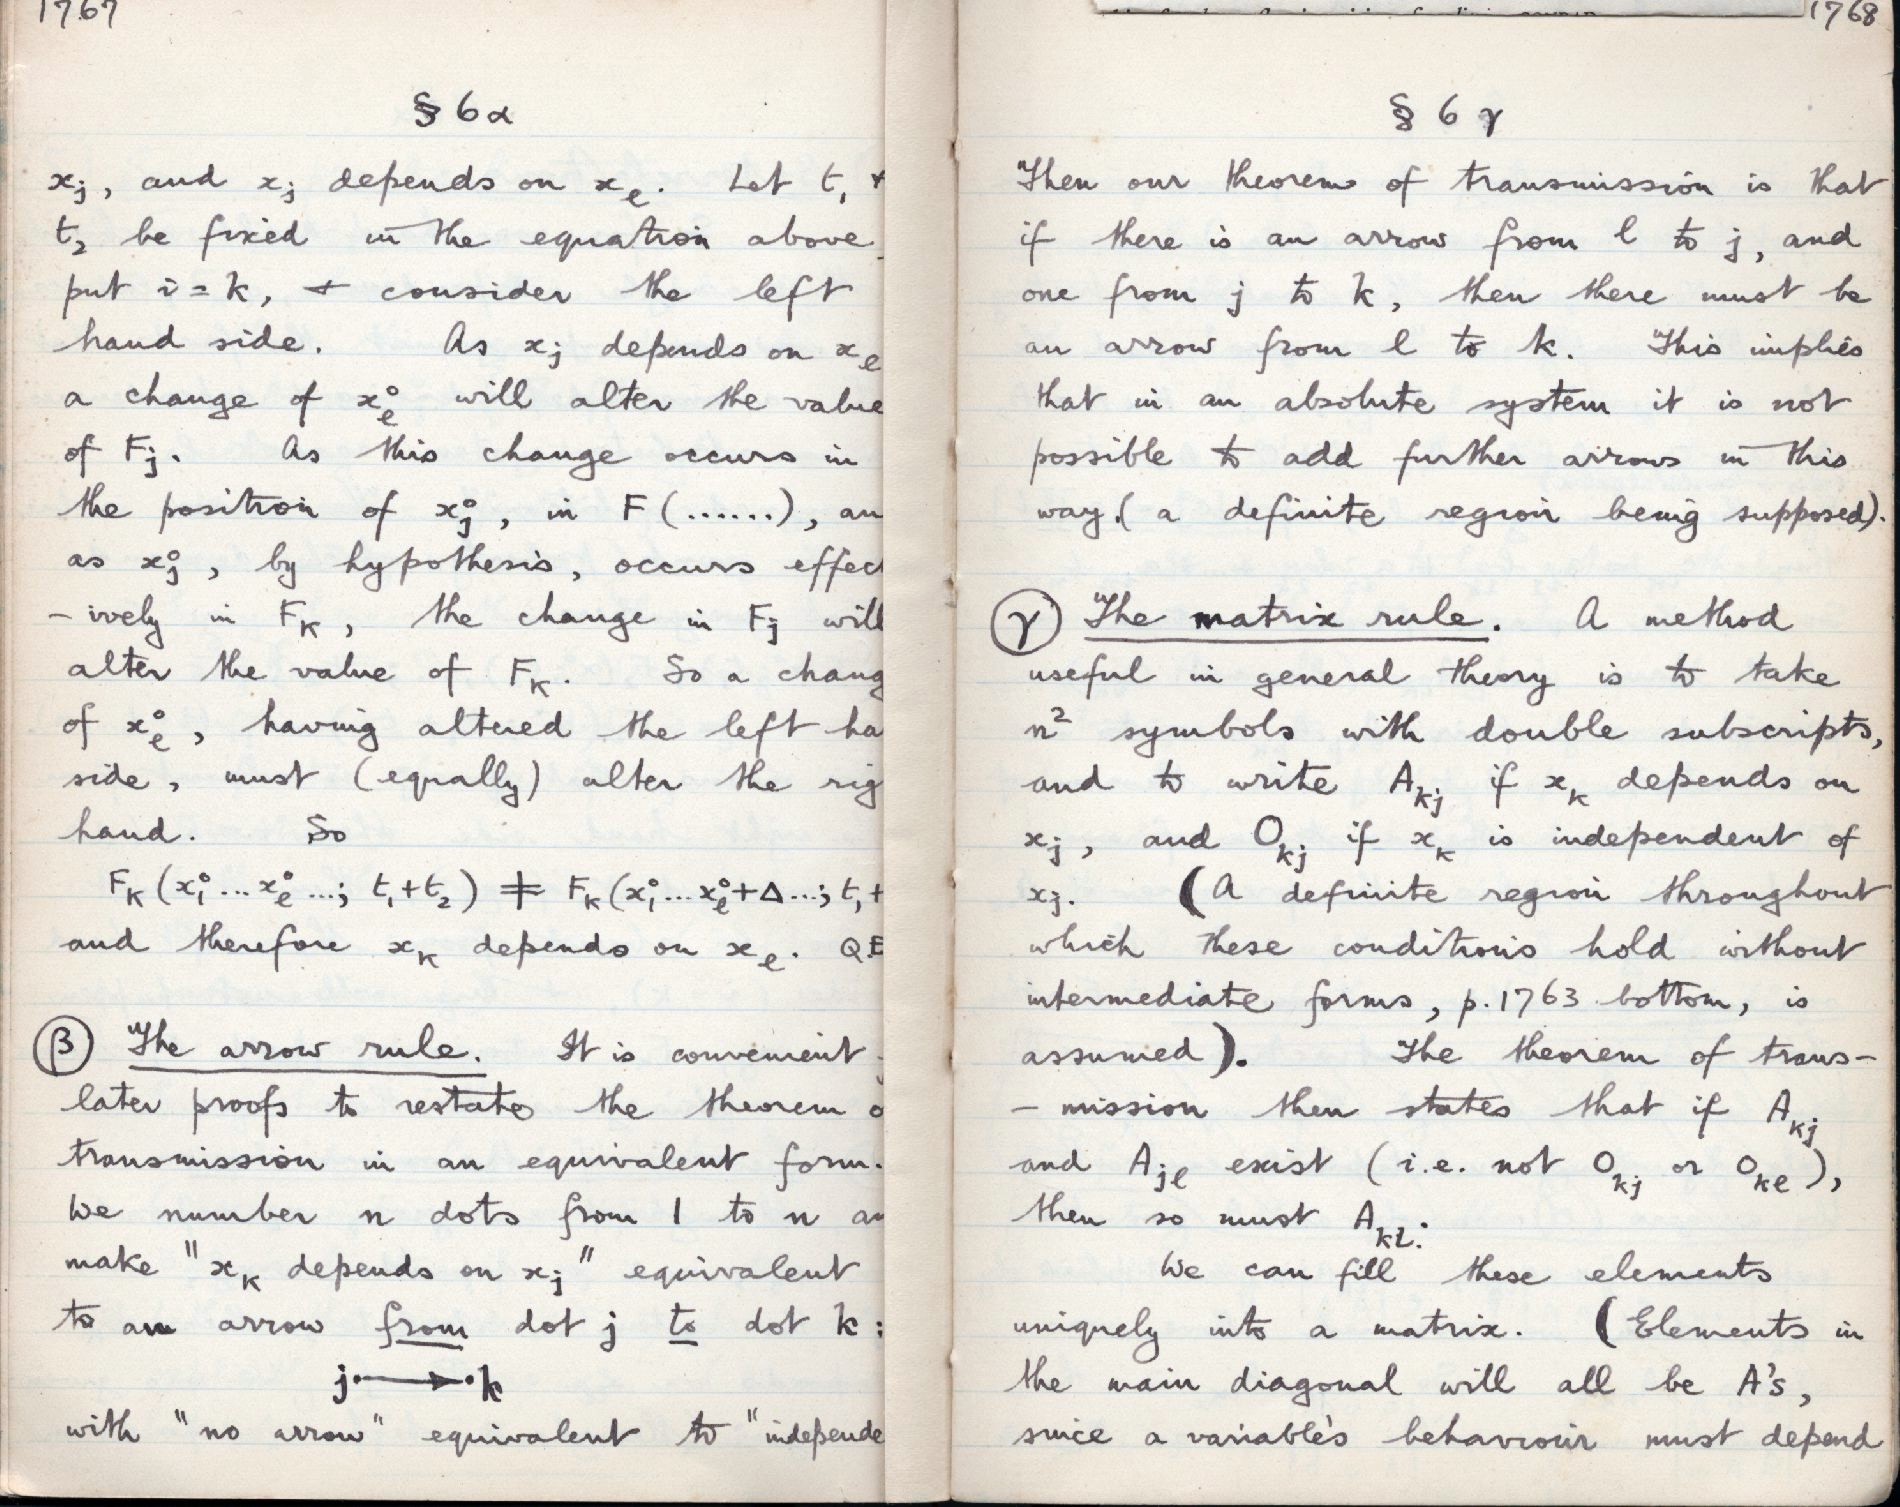 1767
§ 6α
xⱼ, and xⱼ depends on xₑ. Let t₁ +
t₂ be fixed in the equation above
put i = k, + consider the left
hand side. As xⱼ depends on xₑ
a change of xₑ° will alter the value
of Fⱼ. As this change occurs in
the position of xⱼ°, in F(......), an
as xⱼ°, by hypothesis, occurs effect
-ively in Fₖ, the change in Fⱼ will
alter the value of Fₖ. So a chang
of xₑ°, having altered the left ha
side, must (equally) alter the rig
hand. So
Fₖ(x₁°...xₑ°...; t₁+t₂) ≠ Fₖ(x₁°...xₑ°+Δ...; t₁+
and therefore xₖ depends on xₑ. Q.E
β The arrow rule. It is convenient
later proofs to restate the theorem o
transmission in an equivalent form.
We number n dots from 1 to n an
make "xₖ depends on xⱼ" equivalent
to an arrow from dot j to dot k:
j·⟶·k
with "no arrow" equivalent to "independe
1768
§ 6γ
Then our theorem of transmission is that
if there is an arrow from l to j, and
one from j to k, then there must be
an arrow from l to k. This implies
that in an absolute system it is not
possible to add further arrows in this
way. (a definite region being supposed).
γ The matrix rule. A method
useful in general theory is to take
n² symbols with double subscripts,
and to write Aₖⱼ if xₖ depends on
xⱼ, and Oₖⱼ if xₖ is independent of
xⱼ. (A definite region throughout
which these conditions hold without
intermediate forms, p.1763 bottom, is
assumed). The theorem of trans-
-mission then states that if Aₖⱼ
and Aⱼₗ exist (i.e. not Oₖⱼ or Oₖₗ),
then so must Aₖₗ.
We can fill these elements
uniquely into a matrix. (Elements in
the main diagonal will all be A's,
since a variable's behaviour must depend